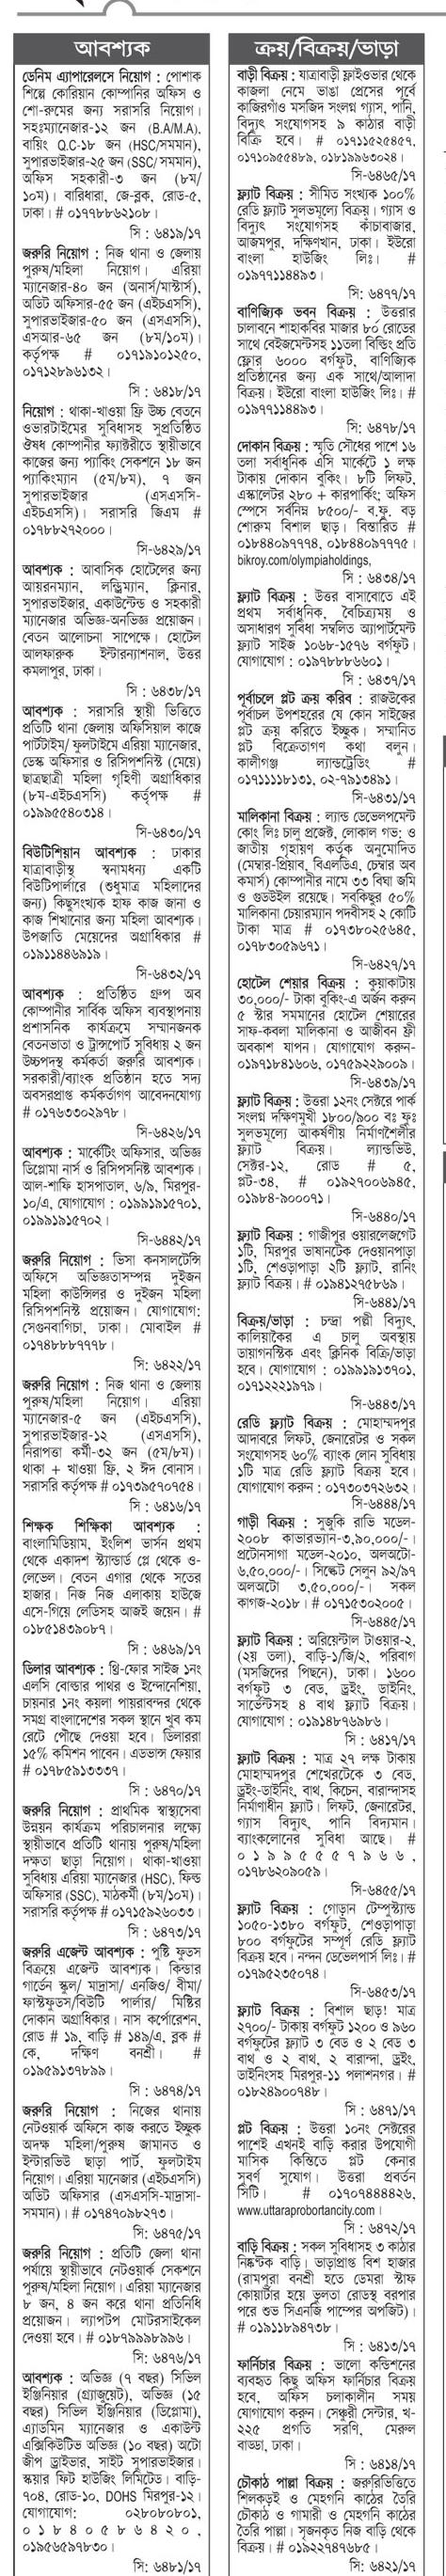 আবশ্যক
ডেনিম এ্যাপারেলসে নিয়োগ : পোশাক
শিল্পে কোরিয়ান কোম্পানির অফিস ও
শো-রুমের জন্য সরাসরি নিয়োগ।
সহঃম্যানেজার-১২ জন (B.A/M.A),
বায়িং Q.C-১৮ জন (HSC/সমমান),
সুপারভাইজার-২৫ জন (SSC/ সমমান),
অফিস সহকারী-৩ জন (৮ম/
১০ম)। বারিধারা, জে-ব্লক, রোড-৫,
ঢাকা। # ০১৭৭৮৮৬২১০৮।
সি : ৬৪১৯/১৭
জরুরি নিয়োগ : নিজ থানা ও জেলায়
পুরুষ/মহিলা নিয়োগ। এরিয়া
ম্যানেজার-৪০ জন (অনার্স/মাস্টার্স),
অডিট অফিসার-৫৫ জন (এইচএসসি),
সুপারভাইজার-৫০ জন (এসএসসি),
এসআর-৬৫ জন (৮ম/১০ম)।
কর্তৃপক্ষ # ০১৭১৯১০১২৫০,
০১৭১২৮৯৬১৩২।
সি : ৬৪১৮/১৭
নিয়োগ : থাকা-খাওয়া ফ্রি উচ্চ বেতনে
ওভারটাইমের সুবিধাসহ সুপ্রতিষ্ঠিত
ঔষধ কোম্পানীর ফ্যাক্টরীতে স্থায়ীভাবে
কাজের জন্য প্যাকিং সেকশনে ১৮ জন
প্যাকিংম্যান (৫ম/৮ম), ৭ জন
সুপারভাইজার (এসএসসি-
এইচএসসি)। সরাসরি জিএম #
০১৭৮৮২৭২০০০।
সি-৬৪২৯/১৭
আবশ্যক : আবাসিক হোটেলের জন্য
আয়রনম্যান, লন্ড্রিম্যান, ক্লিনার,
সুপারভাইজার, একাউন্টেন্ড ও সহকারী
ম্যানেজার অভিজ্ঞ-অনভিজ্ঞ প্রয়োজন।
বেতন আলোচনা সাপেক্ষে। হোটেল
আলফারুক ইন্টারন্যাশনাল, উত্তর
কমলাপুর, ঢাকা।
সি : ৬৪৩৮/১৭
আবশ্যক : সরাসরি স্থায়ী ভিত্তিতে
প্রতিটি থানা জেলায় অফিসিয়াল কাজে
পার্টটাইম/ ফুলটাইমে এরিয়া ম্যানেজার,
ডেস্ক অফিসার ও রিসিপশনিস্ট (মেয়ে)
ছাত্রছাত্রী মহিলা গৃহিণী অগ্রাধিকার
(৮ম-এইচএসসি) কর্তৃপক্ষ #
০১৯৯৫৫৪০৩১৪।
সি-৬৪৩০/১৭
বিউটিশিয়ান আবশ্যক : ঢাকার
যাত্রাবাড়ীস্থ স্বনামধন্য একটি
বিউটিপার্লারে (শুধুমাত্র মহিলাদের
জন্য) কিছুসংখ্যক হাফ কাজ জানা ও
কাজ শিখানোর জন্য মহিলা আবশ্যক।
উপজাতি মেয়েদের অগ্রাধিকার #
০১৯১১৪৪৬৯১৯।
সি-৬৪৩২/১৭
আবশ্যক : প্রতিষ্ঠিত গ্রুপ অব
কোম্পানীর সার্বিক অফিস ব্যবস্থাপনায়
প্রশাসনিক কার্যক্রমে সম্মানজনক
বেতনভাতা ও ট্রান্সপোর্ট সুবিধায় ২ জন
উচ্চপদস্থ কর্মকর্তা জরুরি আবশ্যক।
সরকারী/ব্যাংক প্রতিষ্ঠান হতে সদ্য
অবসরপ্রাপ্ত কর্মকর্তাগণ আবেদনযোগ্য
# ০১৭৬৩৩০২৯৭৮।
সি-৬৪২৬/১৭
আবশ্যক : মার্কেটিং অফিসার, অভিজ্ঞ
ডিপ্লোমা নার্স ও রিসিপসনিষ্ট আবশ্যক।
আল-শাফি হাসপাতাল, ৬/৯, মিরপুর-
১০/এ, যোগাযোগ : ০১৯৯১৯১৫৭০১,
০১৯৯১৯১৫৭০২।
সি-৬৪৪২/১৭
জরুরি নিয়োগ : ভিসা কনসালটেন্সি
অফিসে অভিজ্ঞতাসম্পন্ন দুইজন
মহিলা কাউন্সিলর ও দুইজন মহিলা
রিসিপশনিস্ট প্রয়োজন। যোগাযোগ:
সেগুনবাগিচা, ঢাকা। মোবাইল #
০১৭৪৮৮৮৭৭৭৮।
সি: ৬৪২২/১৭
জরুরি নিয়োগ : নিজ থানা ও জেলায়
পুরুষ/মহিলা নিয়োগ। এরিয়া
ম্যানেজার-৫ জন (এইচএসসি),
সুপারভাইজার-১২ (এসএসসি),
নিরাপত্তা কর্মী-৩২ জন (৫ম/৮ম)।
থাকা + খাওয়া ফ্রি, ২ ঈদ বোনাস।
সরাসরি কর্তৃপক্ষ # ০১৭৩৯৫৭০৭৫৪।
সি : ৬৪১৬/১৭
শিক্ষক শিক্ষিকা আবশ্যক :
বাংলামিডিয়াম, ইংলিশ ভার্সন প্রথম
থেকে একাদশ স্ট্যান্ডার্ড প্লে থেকে ও-
লেভেল। বেতন এগার থেকে সতের
হাজার। নিজ নিজ এলাকায় হাউজে
এসে-গিয়ে লেডিসহ আজই জয়েন। #
০১৮৫১৪৩৯০৮৭।
সি : ৬৪৬৯/১৭
ডিলার আবশ্যক : থ্রি-ফোর সাইজ ১নং
এলসি বোল্ডার পাথর ও ইন্দোনেশিয়া,
চায়নার ১নং কয়লা পায়রাবন্দর থেকে
সমগ্র বাংলাদেশের সকল স্থানে খুব কম
রেটে পৌছে দেওয়া হবে। ডিলাররা
১৫% কমিশন পাবেন। এডভান্স ফেয়ার
# ০১৭৮৫৯১৩৩৩৭।
সি : ৬৪৭০/১৭
জরুরি নিয়োগ : প্রাথমিক স্বাস্থ্যসেবা
উন্নয়ন কার্যক্রম পরিচালনার লক্ষ্যে
স্থায়ীভাবে প্রতিটি থানায় পুরুষ/মহিলা
দক্ষতা ছাড়া নিয়োগ। থাকা-খাওয়া
সুবিধায় এরিয়া ম্যানেজার (HSC), ফিল্ড
অফিসার (SSC), মাঠকর্মী (৮ম/১০ম)।
সরাসরি কর্তৃপক্ষ # ০১৭১৫৯২৬০৩৩।
সি : ৬৪৭৩/১৭
জরুরি এজেন্ট আবশ্যক : পুষ্টি ফুডস
বিক্রয়ে এজেন্ট আবশ্যক। কিন্ডার
গার্ডেন স্কুল/ মাদ্রাসা/ এনজিও/ বীমা/
ফাস্টফুডস/বিউটি পার্লার/ মিষ্টির
দোকান অগ্রাধিকার। নাস কর্পোরেশন,
রোড # ১৯, বাড়ি # ১৪৯/এ, ব্লক #
কে, দক্ষিণ বনশ্রী। #
০১৯৫৯১৩৭৮৯৯।
সি : ৬৪৭৪/১৭
জরুরি নিয়োগ : নিজের থানায়
নেটওয়ার্ক অফিসে কাজ করতে ইচ্ছুক
অদক্ষ মহিলা/পুরুষ জামানত ও
ইন্টারভিউ ছাড়া পার্ট, ফুলটাইম
নিয়োগ। এরিয়া ম্যনেজার (এইচএসসি)
অডিট অফিসার (এসএসসি-মাদ্রাসা-
সমমান)। # ০১৭৪৭০৯৮২৭৩।
সি: ৬৪৭৫/১৭
জরুরি নিয়োগ : প্রতিটি জেলা থানা
পর্যায়ে স্থায়ীভাবে নেটওয়ার্ক সেকশনে
পুরুষ/মহিলা নিয়োগ। এরিয়া ম্যানেজার
৮ জন, ৪ জন করে থানা প্রতিনিধি
প্রয়োজন। ল্যাপটপ মোটরসাইকেল
দেওয়া হবে। # ০১৮৭৯৯৯৮৯৯৬।
সি: ৬৪৭৬/১৭
আবশ্যক : অভিজ্ঞ (৭ বছর) সিভিল
ইঞ্জিনিয়ার (গ্র্যাজুয়েট), অভিজ্ঞ (১৫
বছর) সিভিল ইঞ্জিনিয়ার (ডিপ্লোমা),
এ্যাডমিন ম্যানেজার ও একাউন্ট
এক্সিকিউটিভ অভিজ্ঞ (১০ বছর) অটো
জীপ ড্রাইভার, সাইট সুপারভাইজার।
স্কয়ার ফিট হাউজিং লিমিটেড। বাড়ি-
৭০৪, রোড-১০, DOHS মিরপুর-১২।
যোগাযোগ: ০২৮০৮০৮০১,
০১৮৪০৫৮৬৪২০,
০১৯৫৬৫৯৭৮৩০।
সি: ৬৪৮১/১৭
ক্রয়/বিক্রয়/ভাড়া
বাড়ী বিক্রয় : যাত্রাবাড়ী ফ্লাইওভার থেকে
কাজলা নেমে ভাঙ্গা প্রেসের পূর্বে
কাজিরগাঁও মসজিদ সংলগ্ন গ্যাস, পানি,
বিদ্যুৎ সংযোগসহ ৯ কাঠার বাড়ী
বিক্রি হবে। # ০১৭১১৫২৫৪৫৭,
০১৭১০৯৫৫৪৮৯, ০১৮১৯৯৬৩০২৪।
সি-৬৪৬৫/১৭
ফ্ল্যাট বিক্রয় : সীমিত সংখ্যক ১০০%
রেডি ফ্ল্যাট সুলভমূল্যে বিক্রয়। গ্যাস ও
বিদ্যুৎ সংযোগসহ কাঁচাবাজার,
আজমপুর, দক্ষিণখান, ঢাকা। ইউরো
বাংলা হাউজিং লিঃ। #
০১৯৭৭১১৪৪৯৩।
সি: ৬৪৭৭/১৭
বাণিজ্যিক ভবন বিক্রয় : উত্তরার
চালাবনে শাহাকবির মাজার ৮০ রোডের
সাথে বেইজমেন্টসহ ১১তলা বিল্ডিং প্রতি
ফ্লোর ৬০০০ বর্গফুট, বাণিজ্যিক
প্রতিষ্ঠানের জন্য এক সাথে/আলাদা
বিক্রয়। ইউরো বাংলা হাউজিং লিঃ। #
০১৯৭৭১১৪৪৯৩।
সি: ৬৪৭৮/১৭
দোকান বিক্রয় : স্মৃতি সৌধের পাশে ১৬
তলা সর্বাধুনিক এসি মার্কেটে ১ লক্ষ
টাকায় দোকান বুকিং। ৮টি লিফট,
এস্কালেটর ২৮০ + কারপার্কিং; অফিস
স্পেসে সর্বনিম্ন ৮৫০০/- ব.ফু. বড়
শোরুম বিশাল ছাড়। বিস্তারিত #
০১৮৪৪০৯৭৭৭৪, ০১৮৪৪০৯৭৭৭৫।
bikroy.com/olympiaholdings,
সি : ৬৪৩৪/১৭
ফ্ল্যাট বিক্রয় : উত্তর বাসাবোতে এই
প্রথম সর্বাধুনিক, বৈচিত্র্যময় ও
অসাধারণ সুবিধা সম্বলিত অ্যাপার্টমেন্ট
ফ্ল্যাট সাইজ ১০৬৮-১৫৭৬ বর্গফুট।
যোগাযোগ : ০১৯৭৮৮৮৬৬০১।
সি : ৬৪৩৭/১৭
পূর্বাচলে প্লট ক্রয় করিব : রাজউকের
পূর্বাচল উপশহরের যে কোন সাইজের
প্লট ক্রয় করিতে ইচ্ছুক। সম্মানিত
প্লট বিক্রেতাগণ কথা বলুন।
কালীগঞ্জ ল্যান্ডট্রেডিং #
০১৭১১১১৮১৩১, ০২-৭৯১৩৪৯১।
সি-৬৪৩১/১৭
মালিকানা বিক্রয় : ল্যান্ড ডেভেলপমেন্ট
কোং লিঃ চালু প্রজেক্ট, লোকাল গভ: ও
জাতীয় গৃহায়ণ কর্তৃক অনুমোদিত
(মেম্বার-প্রিয়াব, বিএলডিএ, চেম্বার অব
কমার্স) কোম্পানীর নামে ৩৩ বিঘা জমি
ও গুডউইল রয়েছে। সবকিছুর ৫০%
মালিকানা চেয়ারম্যান পদবীসহ ২ কোটি
টাকা মাত্র # ০১৭৩৮০২৫৬৪৫,
০১৭৮৩০৫৯৬৭১।
সি-৬৪২৭/১৭
হোটেল শেয়ার বিক্রয় : কুয়াকাটায়
৩০,০০০/- টাকা বুকিং-এ অর্জন করুন
৫ স্টার সমমানের হোটেল শেয়ারের
সাফ-কবলা মালিকানা ও আজীবন ফ্রী
অবকাশ যাপন। যোগাযোগ করুন-
০১৯৭১৮৪১৬০৬, ০১৭৫৯২২৯০০৯।
সি-৬৪৩৯/১৭
ফ্ল্যাট বিক্রয় : উত্তরা ১২নং সেক্টরে পার্ক
সংলগ্ন দক্ষিণমুখী ১৮০০/৯০০ বঃ ফুঃ
সুলভমূল্যে আকর্ষণীয় নির্মাণশৈলীর
ফ্ল্যাট বিক্রয়। ল্যান্ডভিউ,
সেক্টর-১২, রোড # ৫,
প্লট-৩৪, # ০১৯২৭০০৬৯৪৫,
০১৯৮৪-৯০০০৭১।
সি-৬৪৪০/১৭
ফ্ল্যাট বিক্রয় : গাজীপুর ওয়ারলেজগেট
১টি, মিরপুর ভাষানটেক দেওয়ানপাড়া
১টি, শেওড়াপাড়া ২টি ফ্ল্যাট, রানিং
ফ্ল্যাট বিক্রয়। # ০১৯৪১২৭৫৮৬৯।
সি-৬৪৪১/১৭
বিক্রয়/ভাড়া : চন্দ্রা পল্লী বিদ্যুৎ,
কালিয়াকৈর এ চালু অবস্থায়
ডায়াগনস্টিক এবং ক্লিনিক বিক্রি/ভাড়া
হবে। যোগাযোগ : ০১৯৯১৯১৩৭০১,
০১৭১২২২১৯৭৯।
সি-৬৪৪৩/১৭
রেডি ফ্ল্যাট বিক্রয় : মোহাম্মদপুর
আদাবরে লিফট, জেনারেটর ও সকল
সংযোগসহ ৬০% ব্যাংক লোন সুবিধায়
১টি মাত্র রেডি ফ্ল্যাট বিক্রয় হবে।
যোগাযোগ করুন : ০১৭৩০৩৭২৬৩২।
সি-৬৪৪৪/১৭
গাড়ী বিক্রয় : সুজুকি রাভি মডেল-
২০০৮ কাভারভ্যান-৩,৯০,০০০/-।
প্রটোনসাগা মডেল-২০১০, অলঅটো-
৬,৫০,০০০/-। সিল্কেট সেলুন ৯২/৯৭
অলঅটো ৩,৫০,০০০/-। সকল
কাগজ-২০১৮। # ০১৭১৫৩০২০০৫।
সি-৬৪৪৫/১৭
ফ্ল্যাট বিক্রয় : অরিয়েন্টাল টাওয়ার-২,
(২য় তলা), বাড়ি-১/জি/২, পরিবাগ
(মসজিদের পিছনে), ঢাকা। ১৬০০
বর্গফুট ৩ বেড, ড্রইং, ডাইনিং,
সার্ভেন্টসহ ৪ বাথ ফ্ল্যাট বিক্রয়।
যোগাযোগ : ০১৯১৪৮৭৬৯৮৬।
সি : ৬৪১৭/১৭
ফ্ল্যাট বিক্রয় : মাত্র ২৭ লক্ষ টাকায়
মোহাম্মদপুর শেখেরটেকে ৩ বেড,
ড্রইং-ডাইনিং, বাথ, কিচেন, বারান্দাসহ
নির্মাণাধীন ফ্ল্যাট। লিফট, জেনারেটর,
গ্যাস বিদ্যুৎ, পানি বিদ্যমান।
ব্যাংকলোনের সুবিধা আছে। #
০১৯৯৫৫৫৭৯৬৬,
০১৭৮৬২০৯০৫৯।
সি-৬৪৫৫/১৭
ফ্ল্যাট বিক্রয় : গোড়ান টেম্পুস্ট্যান্ড
১০৫০-১৩৮০ বর্গফুট, শেওড়াপাড়া
৮০০ বর্গফুটের সম্পূর্ণ রেডি ফ্ল্যাট
বিক্রয় হবে। নন্দন ডেভেলপার্স লিঃ। #
০১৭৯৫২৩৫০৭৪।
সি-৬৪৫৩/১৭
ফ্ল্যাট বিক্রয় : বিশাল ছাড়! মাত্র
২৭০০/- টাকায় বর্গফুট ১২০০ ও ৯৬০
বর্গফুটের ফ্ল্যাট ৩ বেড ও ২ বেড ৩
বাথ ও ২ বাথ, ২ বারান্দা, ড্রইং,
ডাইনিংসহ মিরপুর-১১ পলাশনগর। #
০১৮২৪৯০০৭৪৮।
সি: ৬৪৭১/১৭
প্লট বিক্রয় : উত্তরা ১০নং সেক্টরের
পাশেই এখনই বাড়ি করার উপযোগী
মাসিক কিস্তিতে প্লট কেনার
সুবর্ণ সুযোগ। উত্তরা প্রবর্তন
সিটি। # ০১৭০৭৪৪৪৪২৬,
www.uttaraprobortancity.com।
সি: ৬৪৭২/১৭
বাড়ি বিক্রয় : সকল সুবিধাসহ ৩ কাঠার
নিষ্কণ্টক বাড়ি। ভাড়াপ্রাপ্ত বিশ হাজার
(রামপুরা বনশ্রী হতে ডেমরা স্টাফ
কোয়ার্টার হয়ে ভুলতা রোডস্থ বরপার
পরে শুভ সিএনজি পাম্পের অপজিট)।
# ০১৯১১৮৯৪৭৩৮।
সি : ৬৪১৩/১৭
ফার্নিচার বিক্রয় : ভালো কন্ডিশনের
ব্যবহৃত কিছু অফিস ফার্নিচার বিক্রয়
হবে, অফিস চলাকালীন সময়
যোগাযোগ করুন। সেঞ্চুরী সেন্টার, খ-
২২৫ প্রগতি সরণি, মেরুল
বাড্ডা, ঢাকা।
সি : ৬৪১৪/১৭
চৌকাঠ পাল্লা বিক্রয় : জরুরিভিত্তিতে
শিলকড়ই ও মেহগনি কাঠের তৈরি
চৌকাঠ ও গামারী ও মেহগনি কাঠের
তৈরি পাল্লা। সৃজনকৃত নিজ বাড়ি থেকে
বিক্রয়। # ০১৯২২৭৪৭৬৮৫।
সি: ৬৪২১/১৭